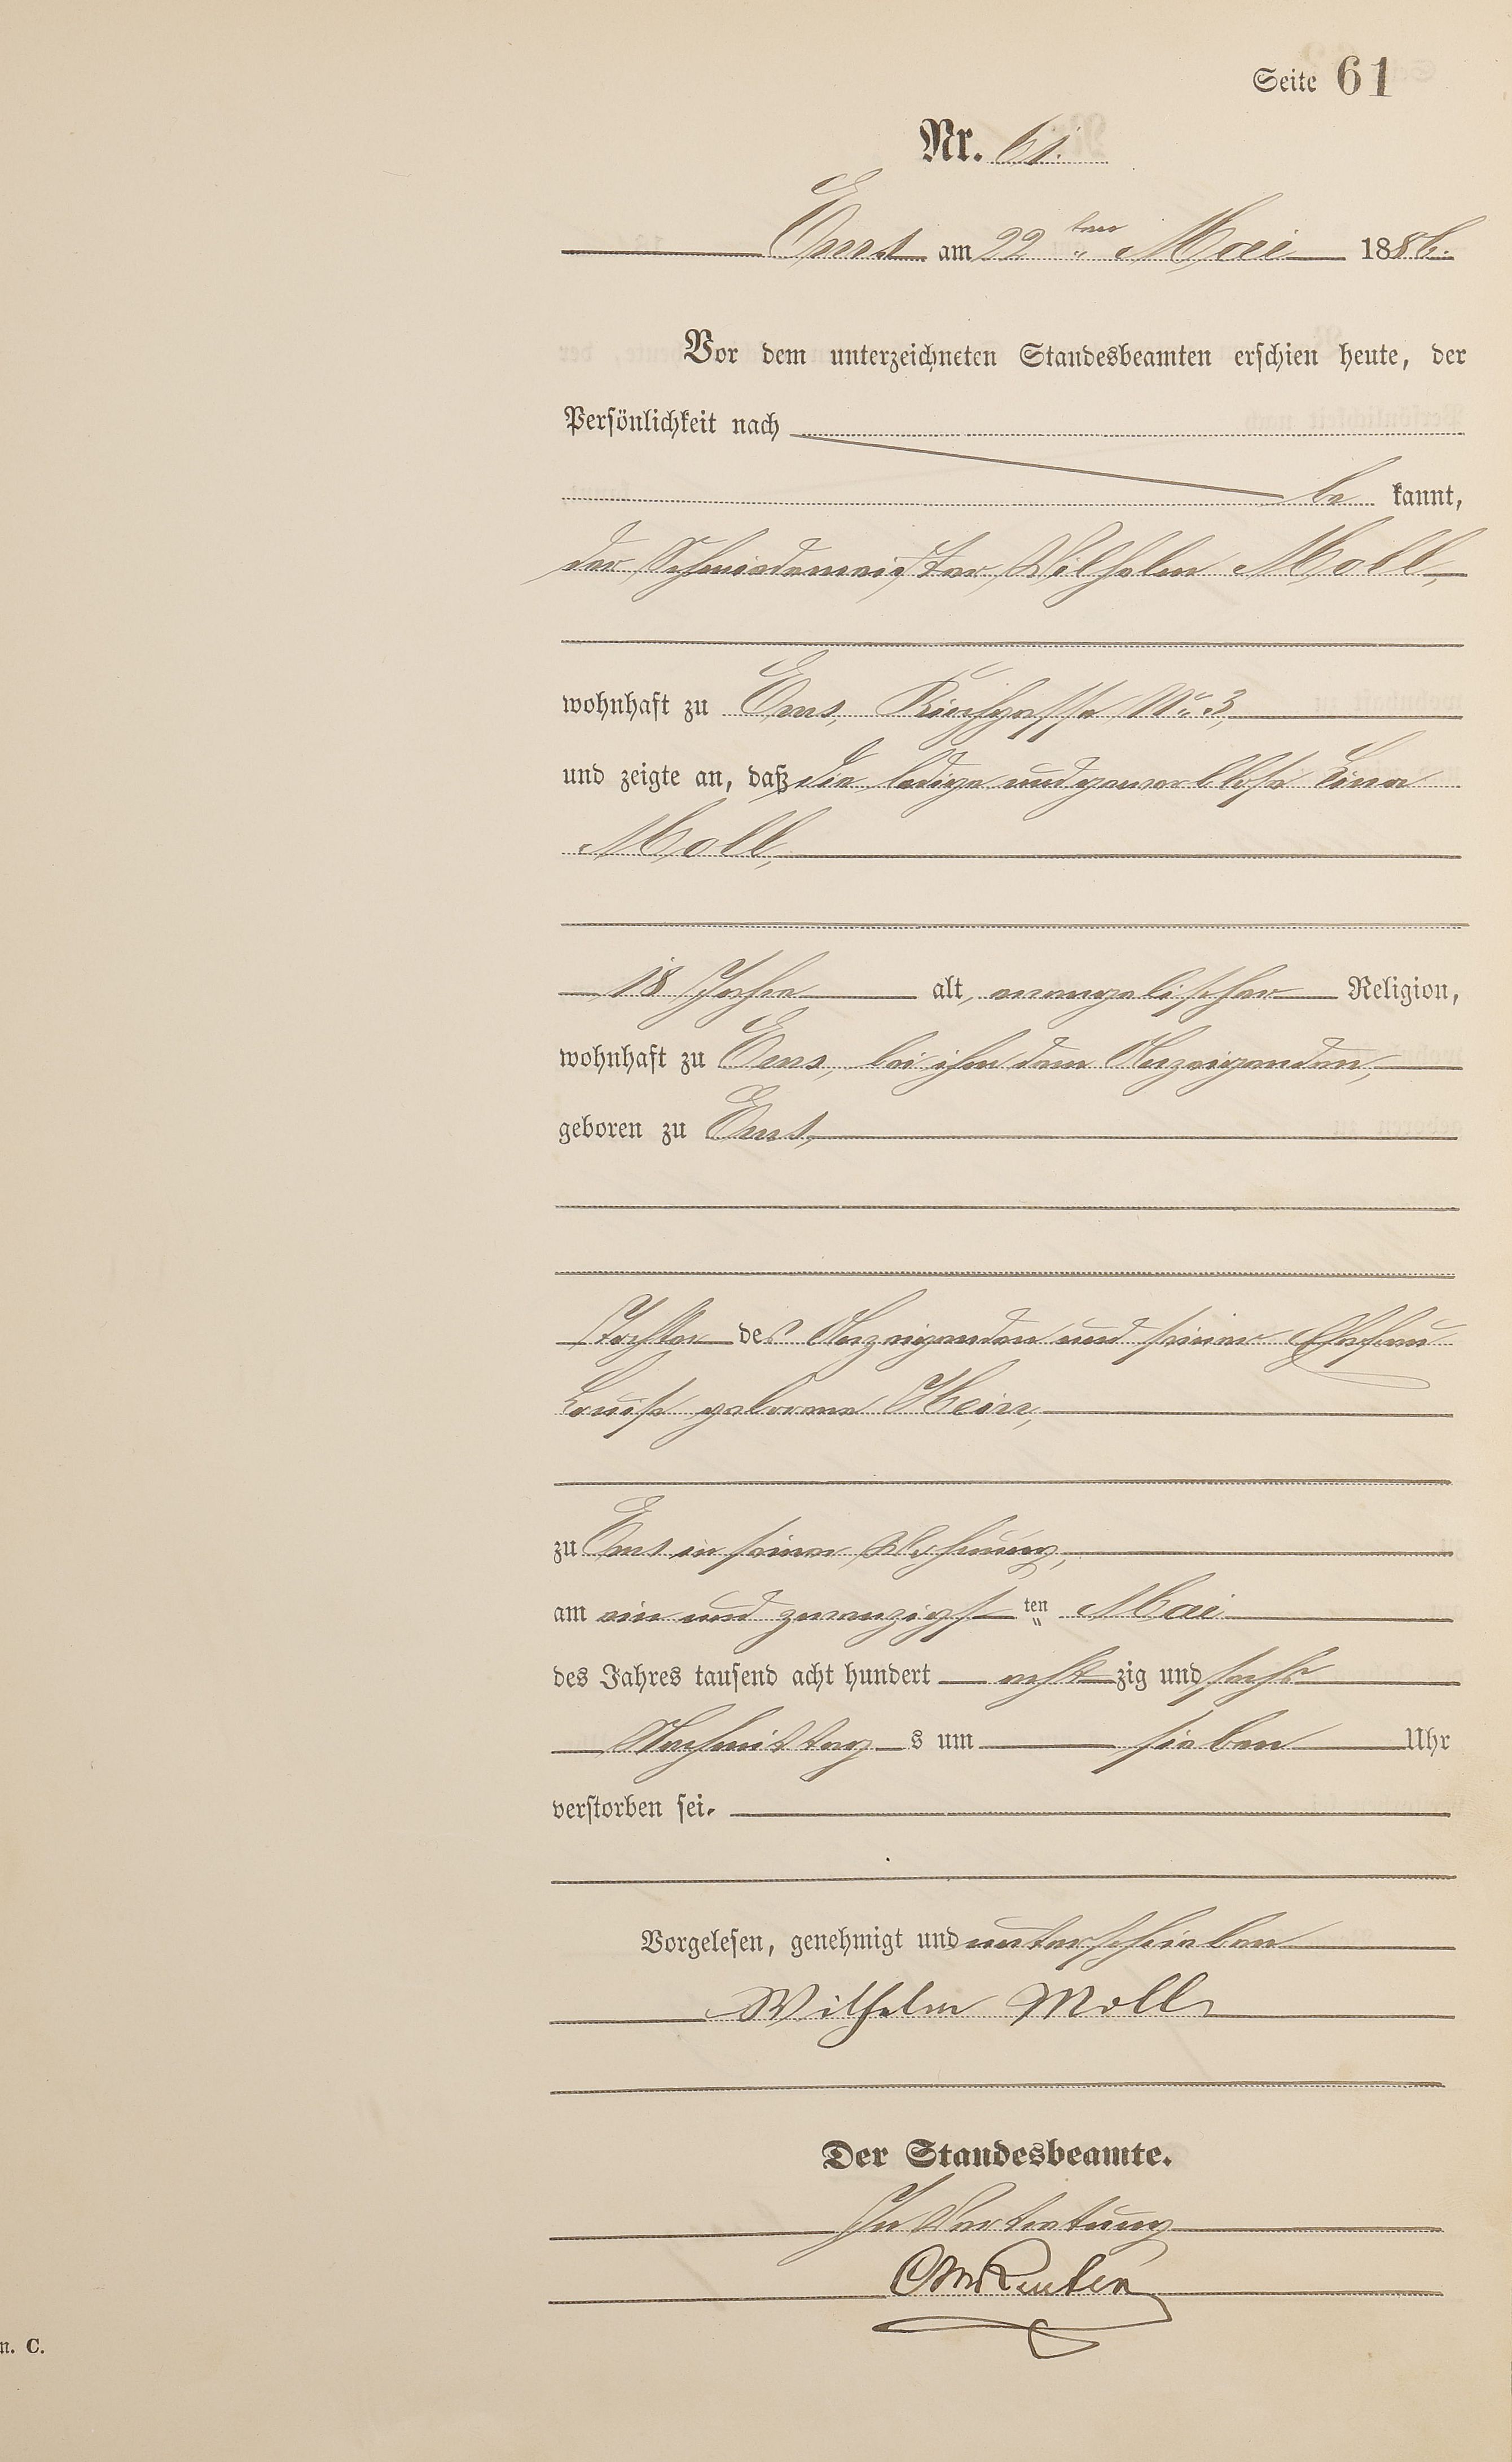 Seite 61
Nr. 61.
Ems am 22 ten Mai 1886.
Vor dem unterzeichneten Standesbeamten erschien heute, der
Persönlichkeit nach
be kannt,
der Schmiedemeister Wilhelm Moll,
wohnhaft zu Ems, Kirchgasse No. 3,
und zeigte an, daß die ledige und gewerblose Lina
Moll,
18 Jahre alt, evangelischer Religion,
wohnhaft zu Ems, bei ihm dem Anzeigenden,
geboren zu Ems,
Tochter des Anzeigenden und seiner Ehefrau
Louise geborene Hein,
zu Ems in seiner Wohnung,
am ein und zwanzigst ten Mai
des Jahres tausend acht hundert acht zig und sechs
Nachmittag s um sieben Uhr
verstorben sei.
Vorgelesen, genehmigt und unterschrieben
Wilhelm Moll
Der Standesbeamte.
In Vertretung
n. C.